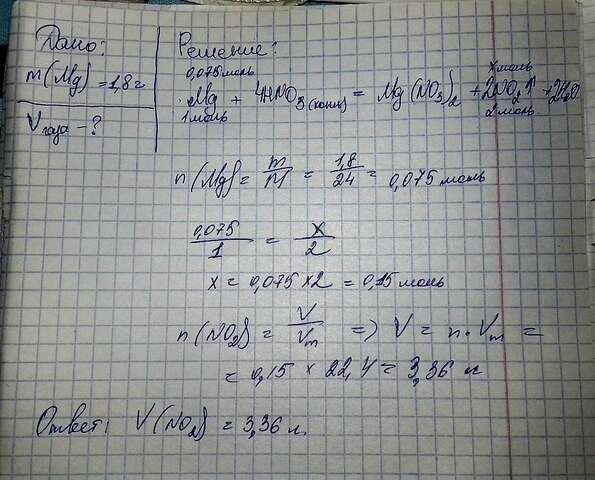 Дано:
m(Mg) = 1,8 г
V газа - ?
Решение:
0,075 моль
x моль
Mg + 4HNO3(конц) = Mg(NO3)2 + 2NO2↑ + 2H2O
1 моль
2 моль
n(Mg) = m/M = 1,8/24 = 0,075 моль
0,075/1 = x/2
x = 0,075 × 2 = 0,15 моль
n(NO2) = V/Vm => V = n · Vm =
= 0,15 × 22,4 = 3,36 л
Ответ: V(NO2) = 3,36 л.